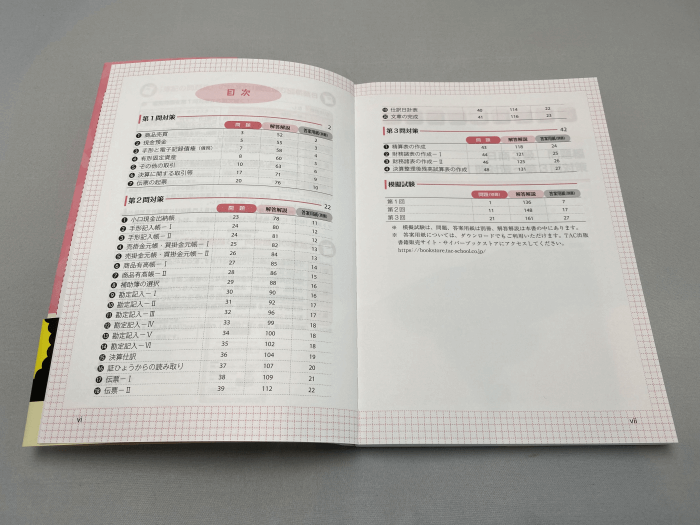 目次
第1問対策 2
問題 解答解説 答案用紙(別冊)
❶ 商品売買 3 52 2
❷ 現金預金 5 55 3
❸ 手形と電子記録債権(債務) 7 58 4
❹ 有形固定資産 8 60 5
❺ その他の取引 10 63 6
❻ 決算に関する取引等 17 71 9
❼ 伝票の起票 20 76 10
第2問対策 22
問題 解答解説 答案用紙(別冊)
❶ 小口現金出納帳 23 78 11
❷ 手形記入帳－Ⅰ 24 80 12
❸ 手形記入帳－Ⅱ 24 81 12
❹ 売掛金元帳・買掛金元帳－Ⅰ 25 82 13
❺ 売掛金元帳・買掛金元帳－Ⅱ 26 84
❻ 商品有高帳－Ⅰ 27 85 14
❼ 商品有高帳－Ⅱ 28 86 15
❽ 補助簿の選択 29 88 16
❾ 勘定記入－Ⅰ 30 90 16
❿ 勘定記入－Ⅱ 31 92 17
⓫ 勘定記入－Ⅲ 32 96 17
⓬ 勘定記入－Ⅳ 33 99 18
⓭ 勘定記入－Ⅴ 34 100 18
⓮ 勘定記入－Ⅵ 35 102 18
⓯ 決算仕訳 36 104 19
⓰ 証ひょうからの読み取り 37 107 20
⓱ 伝票－Ⅰ 38 109 21
⓲ 伝票－Ⅱ 39 112 22
vi
⓳ 仕訳日計表 40 114 22
⓴ 文章の完成 41 116 23
第3問対策 42
問題 解答解説 答案用紙(別冊)
❶ 精算表の作成 43 118 24
❷ 財務諸表の作成－Ⅰ 44 121 25
❸ 財務諸表の作成－Ⅱ 46 125 26
❹ 決算整理後残高試算表の作成 48 131 27
模擬試験
問題(別冊) 解答解説 答案用紙(別冊)
第1回 1 136 7
第2回 11 148 17
第3回 21 161 27
※ 模擬試験は、問題、答案用紙は別冊、解答解説は本書の中にあります。
※ 答案用紙については、ダウンロードでもご利用いただけます。TAC出版
書籍販売サイト・サイバーブックストアにアクセスしてください。
https://bookstore.tac-school.co.jp/
vii